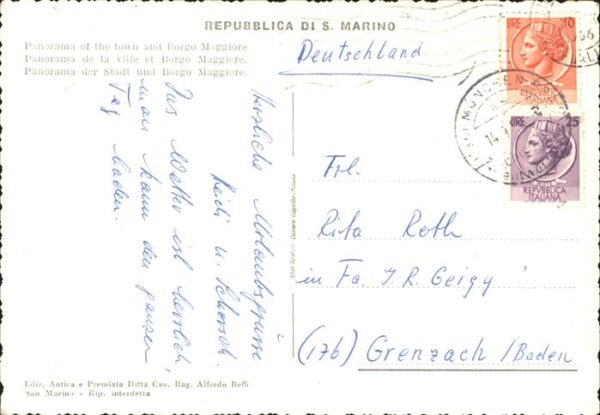 REPUBBLICA DI S. MARINO
Panorama of the town and Borgo Maggiore
Panorama de la ville et Borgo Maggiore.
Panorama der Stadt und Borgo Maggiore.
Deutschland
LIRE 10
REPUBBLICA
ITALIANA
LIRE 25
REPUBBLICA
ITALIANA
MÜNCHEN
14
Herzliche Urlaubsgrüsse
Heidi u. Schorsch.
Das Wetter ist herrlich,
man kann den ganzen
Tag baden.
Frl.
Rita Roth
in Fa. J.R. Geigy
(17b) Grenzach/Baden
Ediz. Antica e Premiata Ditta Cav. Rag. Alfredo Reffi
San Marino - Rip. interdetta